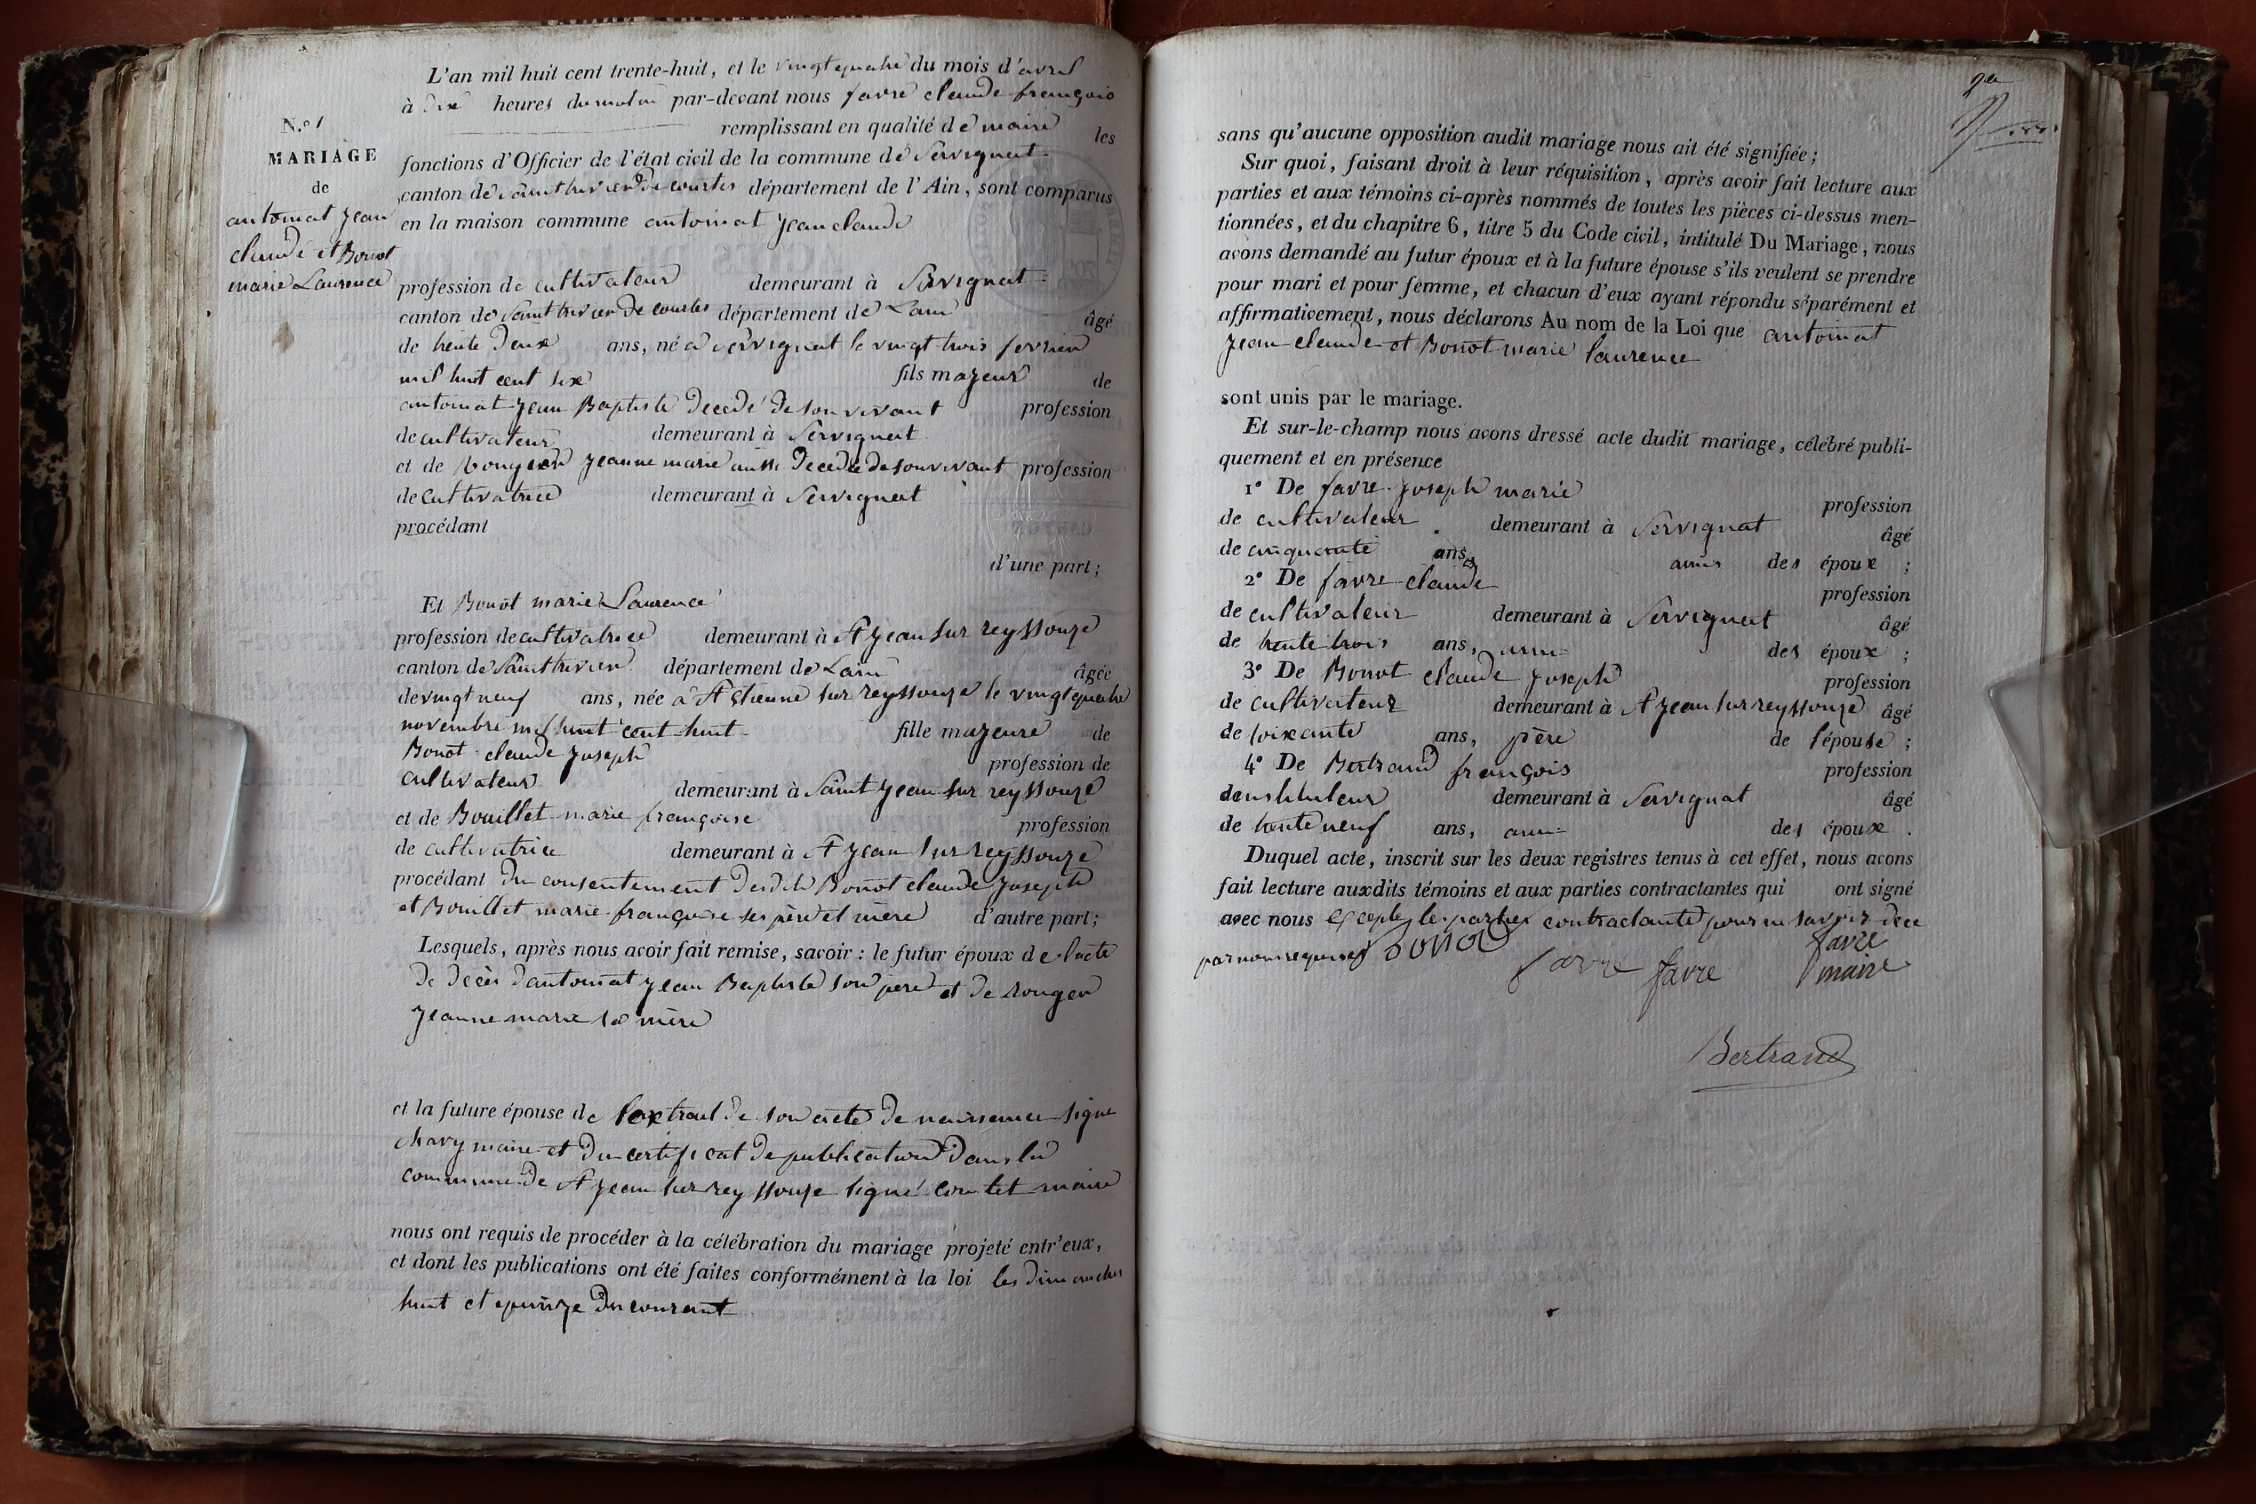 L'an mil huit cent trente-huit, et le vingt quatre du mois d'avril
à dix heures du matin par-devant nous favre claude françois
remplissant en qualité de maire les
N.º 1
MARIAGE
de
antoinat jean
claude et Bonot
marie Laurence
fonctions d'Officier de l'état civil de la commune de Servignat
canton de Saint trivier de courtes département de l'Ain, sont comparus
en la maison commune antoinat jean claude
profession de cultivateur demeurant à Servignat
canton de Saint trivier de courtes département de Lain âgé
de trente deux ans, né à servignat le vingt trois fevrier
mil huit cent six fils majeur de
antoinat jean Baptiste decedé de son vivant profession
de cultivateur demeurant à Servignat
et de jeanne marie aussi decedée de son vivant profession
de cultivatrice demeurant à Servignat
procédant
d'une part;
Et Bonot marie Laurence
profession de cultivatrice demeurant à St jean sur reyssouze
canton de Saint trivier département de Lain âgée
de vingt neuf ans, née à St étienne sur reyssouze le vingt quatre
novembre mil huit cent huit fille majeure de
Bonot claude joseph profession de
cultivateur demeurant à Saint jean sur reyssouze
et de Bouillet marie françoise profession
de cultivatrice demeurant à St jean sur reyssouze
procédant du consentement desdits Bonot claude joseph
et Bouillet marie françoise ses père et mère d'autre part;
Lesquels, après nous avoir fait remise, savoir: le futur époux de l'acte
de décès d'antoinat jean Baptiste son père et de
jeanne marie sa mère
et la future épouse de l'extrait de son acte de naissance signé
chavy maire et du certificat de publication dans la
commune de St jean sur reyssouze signé maire
nous ont requis de procéder à la célébration du mariage projeté entr'eux,
et dont les publications ont été faites conformément à la loi les dimanches
huit et quinze du courant
sans qu'aucune opposition audit mariage nous ait été signifiée;
Sur quoi, faisant droit à leur réquisition, après avoir fait lecture aux
parties et aux témoins ci-après nommés de toutes les pièces ci-dessus men-
tionnées, et du chapitre 6, titre 5 du Code civil, intitulé Du Mariage, nous
avons demandé au futur époux et à la future épouse s'ils veulent se prendre
pour mari et pour femme, et chacun d'eux ayant répondu séparément et
affirmativement, nous déclarons Au nom de la Loi que antoinat
jean claude et Bonot marie laurence
sont unis par le mariage.
Et sur-le-champ nous avons dressé acte dudit mariage, célébré publi-
quement et en présence
1º De favre joseph marie profession
de cultivateur demeurant à Servignat âgé
de cinquante ans, amis des époux;
2º De favre claude profession
de cultivateur demeurant à Servignat âgé
de trente trois ans, ami des époux;
3º De Bonot claude joseph profession
de cultivateur demeurant à St jean sur reyssouze âgé
de soixante ans, père de l'épouse;
4º De Bertrand françois profession
de instituteur demeurant à Servignat âgé
de trente neuf ans, ami des époux.
Duquel acte, inscrit sur les deux registres tenus à cet effet, nous avons
fait lecture auxdits témoins et aux parties contractantes qui ont signé
avec nous excepté les parties contractante pour ne savoir de ce
par nous requises Bonot
favre favre favre
maire
Bertrand